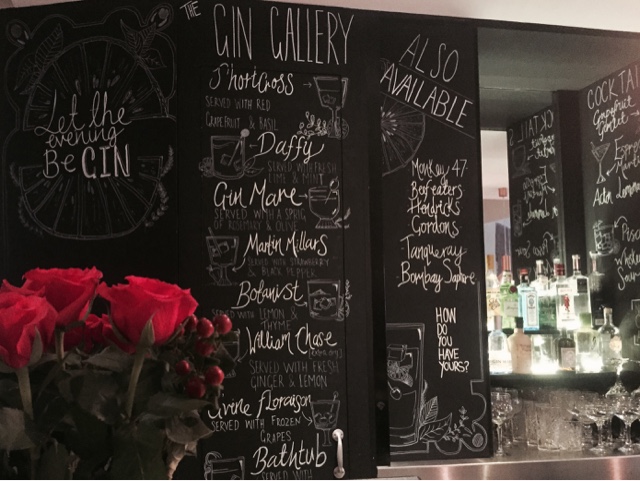 Let the
evening
Be GIN
THE
GIN GALLERY
ShortCross
SERVED WITH RED
GRAPEFRUIT & BASIL
Daffy
SERVED WITH FRESH
LIME & MINT
Gin Mare
SERVED WITH A SPRIG
OF ROSEMARY & OLIVE
Martin Millars
SERVED WITH STRAWBERRY
& BLACK PEPPER
Botanist
SERVED WITH LEMON &
THYME
William Chase
SERVED WITH FRESH
GINGER & LEMON
Floraison
SERVED WITH FROZEN
GRAPES
Bathtub
SERVED WITH
ALSO
AVAILABLE
Monkey 47
Beefeaters
Hendricks
Gordons
Tanqueray
Bombay Saphire
HOW
DO
YOU
HAVE
YOURS?
COCKTAI
Grapefruit